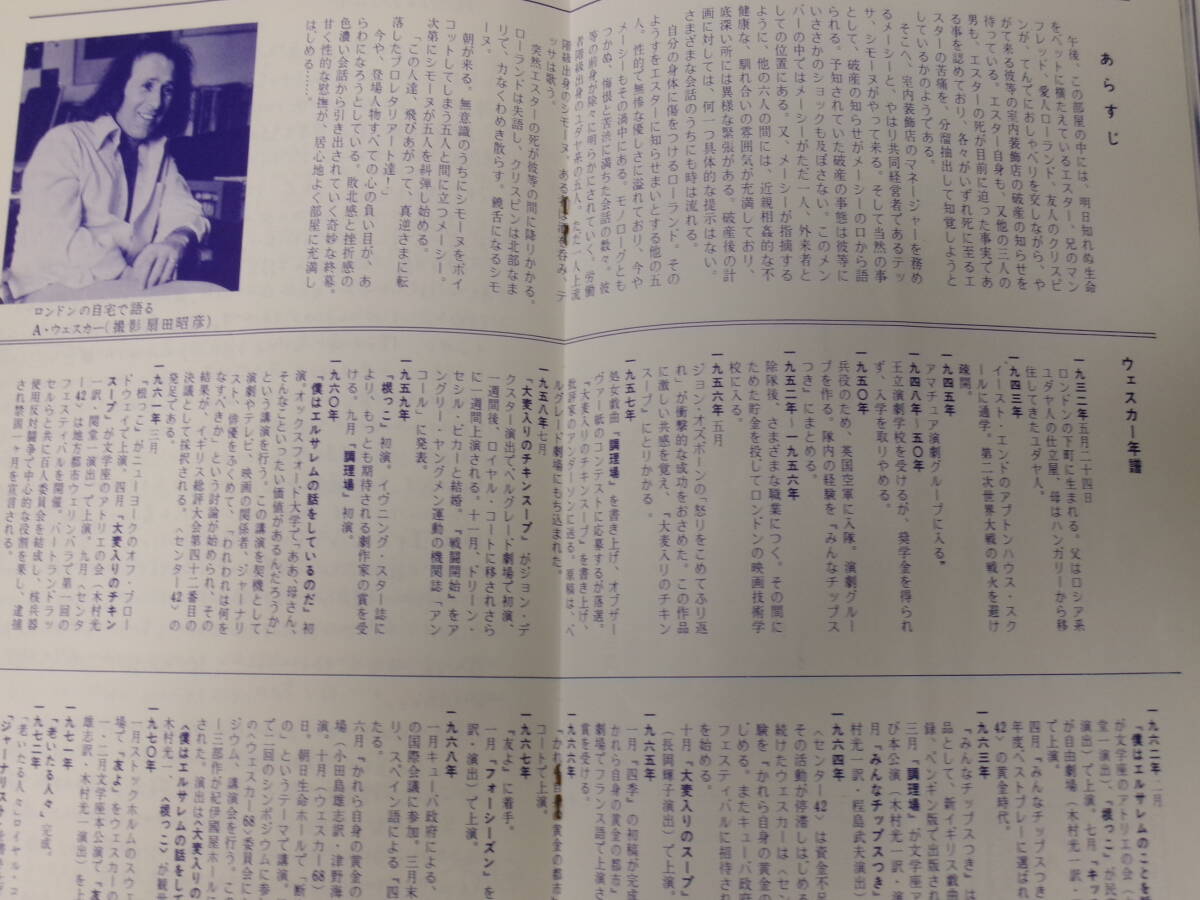 あらすじ
午後、この部屋の中には、明日知れぬ生命
をベットに横たえているエスター、兄のマン
フレッド、愛人ローランド、友人のクリスピ
ンが、てんでにおしゃべりを交しながら、や
がて来る彼等の室内装飾店の破産の知らせを
待っている。エスター自身も、又他の三人の
男も、エスターの死が目前に迫った事実であ
る事を認めており、各々がいずれ死に至るエ
スターの苦痛を、分溜抽出して知覚しようと
しているかのようである。
そこへ、室内装飾店のマネージャーを務め
るメーシーと、やはり共同経営者であるテッ
サ、シモーヌがやって来る。そして当然の事
として、破産の知らせがメーシーの口から語
られる。予知されていた破産の事態は彼等に
いささかのショックも及ぼさない。このメン
バーの中ではメーシーがただ一人、外来者と
しての位置にある。又、メーシーが指摘する
ように、他の六人の間には、近親相姦的な不
健康な、馴れ合いの雰囲気が充満しており、
底深い所には異様な緊張がある。破産後の計
画に対しては、何一つ具体的な提示はない。
さまざまな会話のうちにも時は流れる。
自分の身体に傷をつけるローランド。その
ようすをエスターに知らせまいとする他の五
人。性的で無惨な優しさに溢れており、今や
メーシーもその渦中にある。モノローグとも
つかぬ、悔恨と苦渋に満ちた会話の数々。彼
等の前身が除々に明らかにされていく。労働
者階級出身のユダヤ系の五人、ただ一人上流
階級出身のシモーヌ、ある
ッサは歌う。
突然エスターの死が彼等の間に降りかかる。
ローランドは失語し、クリスピンは北部なま
りで、力なくわめき散らす。饒舌になるシモ
ーヌ。
朝が来る。無意識のうちにシモーヌをボイ
コットしてしまう五人と間に立つメーシー。
次第にシモーヌが五人を糾弾し始める。
「この人達、飛びあがって、真逆さまに転
落したプロレタリアート達！」
今や、登場人物すべての心の負い目が、あ
らわになろうとしている。敗北感と挫折感の
色濃い会話から引き出されていく奇妙な終幕。
甘く性的な慰撫が、居心地よく部屋に充満し
はじめる……。
ロンドンの自宅で語る
A・ウェスカー(撮影 扇田昭彦)
ウェスカー年譜
一九三二年五月二十四日
ロンドンの下町に生まれる。父はロシア系
ユダヤ人の仕立屋、母はハンガリーから移
住してきたユダヤ人。
一九四三年
イースト・エンドのアプトンハウス・スク
ールに通学。第二次世界大戦の戦火を避け
疎開。
一九四五年
アマチュア演劇グループに入る。
一九四八年～五〇年
王立演劇学校を受けるが、奨学金を得られ
ず、入学を取りやめる。
一九五〇年
兵役のため、英国空軍に入隊。演劇グルー
プを作る。隊内の経験を『みんなチップス
つき』にまとめる。
一九五二年～一九五六年
除隊後、さまざまな職業につく。その間に
ためた貯金を投じてロンドンの映画技術学
校に入る。
一九五六年五月
ジョン・オズボーンの『怒りをこめてふり返
れ』が衝撃的な成功をおさめた。この作品
に激しい共感を覚え、『大麦入りのチキン
スープ』にとりかかる。
一九五七年
処女戯曲『調理場』を書き上げ、オブザー
ヴァー紙のコンテストに応募するが落選。
『大麦入りのチキンスープ』を書き上げ、
批評家のアンダーソンに送る。原稿は、ベ
ルグレード劇場にもち込まれた。
一九五八年七月
『大麦入りのチキンスープ』がジョン・デ
クスター演出でベルグレード劇場で初演、
一週間後、ロイヤル・コートに移されさら
に一週間上演される。十一月、ドリーン・
セシル・ビカーと結婚。『戦闘開始』をア
ングリー・ヤングメン運動の機関誌「アン
コール」に発表。
一九五九年
『根っこ』初演。イヴニング・スター誌に
より、もっとも期待される劇作家の賞を受
ける。九月『調理場』初演。
一九六〇年
『僕はエルサレムの話をしているのだ』初
演。オックスフォード大学で、〝ああ、母さん、
そんなこといったい価値があるんだろうか〟
という講演を行う。この講演を契機として
演劇やテレビ、映画の関係者、ジャーナリ
スト、俳優をふくめて、「われわれは何を
なすべきか」という討論が始められ、その
結果が、イギリス総評大会第四十二番目の
決議として採択される。〈センター42〉の
発足である。
一九六一年三月
『根っこ』がニューヨークのオフ・ブロー
ドウェイで上演。四月『大麦入りのチキン
スープ』が文学座のアトリエの会(木村光
一訳、関堂一演出)で上演。九月〈センタ
ー42〉は地方都市ウェリンバラで第一回の
フェスティバルを開催。バートランド・ラッ
セルらと共に百人委員会を結成し、核兵器
使用反対闘争で中心的な役割を果し、逮捕
され禁固一ヶ月を宣言される。
一九六二年一月
『僕はエルサレムのことを
が文学座のアトリエの会(
堂一演出)、『根っこ』が民
が自由劇場(木村光一訳・
て上演。
四月『みんなチップスつき
年度ベストプレーに選ばれ
42〉の黄金時代。
一九六三年
『みんなチップスつき』は
品として、新イギリス戯曲
録、ペンギン版で出版され
三月、『調理場』が文学座ア
び本公演(木村光一訳・演
月『みんなチップスつき』
村光一訳・程島武夫演出)
一九六四年
〈センター42〉は資金不足
その活動が停滞しはじめる
続けたウェスカーは〈セン
験を『かれら自身の黄金の
じめる。またキューバ政府
フェスティバルに招待され
を始める。
十月『大麦入りのスープ』
(長岡輝子演出)で上演。
一九六五年
一月『四季』の初稿が完成
かれら自身の黄金の都市
劇場でフランス語で上演さ
賞を受ける。
一九六六年
『かれら自身の黄金の都市』
コートで上演。
一九六七年
『友よ』に着手。
一月『フォーシーズン』を
訳・演出)で上演。
一九六八年
一月キューバ政府による、
の国際会議に参加。三月末
リ、スペイン語による『四
たる。
六月『かれら自身の黄金の
場(小田島雄志訳・津野海
演。十月〈ウェスカー68〉
日、朝日生命ホールで「断
の」というテーマで講演。
て二回のシンポジウムに参
の〈ウェスカー68〉委員会に
ジウム、講演会を行う。こ
ー三部作が紀伊國屋ホールに
された。演出は『大麦入りの
『僕はエルサレムの話をして
木村光一、『根っこ』が観世
一九七〇年
一月ストックホルムのスウェ
場で『友よ』をウェスカーの
一・二月文学座本公演で『友
雄志訳・木村光一演出)を上
一九七一年
『老いたる人々』完成。
一九七二年
『老いたる人々』ロイヤル・コ